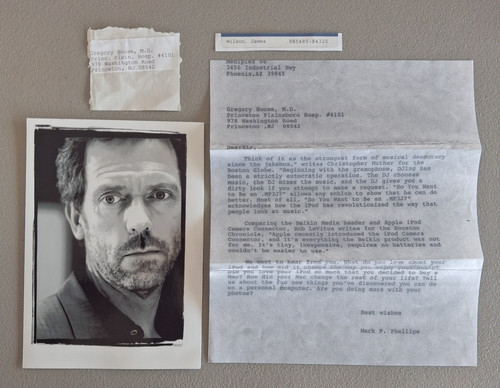 Gregory House, M.D.
Princ. Plain. Hosp. #4101
978 Washington Road
Princeton, NJ 08542
Wilson, James
3456 Industrial Hwy
Phoenix,AZ 39845
Gregory House, M.D.
Princeton Plainsboro Hosp. #4101
978 Washington Road
Princeton ,NJ 08542
Think of it as the strongest form of musical democracy
since the jukebox," writes Christopher Muther for the
Boston Globe. "Beginning with the gramophone, DJing has
been a strictly autocratic operation. The DJ chooses
music, the DJ mixes the music, and the DJ gives you a
dirty look if you attempt to make a request. "So You Want
to Be an .MP3J?" allows any schlub to show that he can do
better. Most of all, "So You Want to be an .MP3J?"
acknowledges how the iPod has revolutionized the way that
people look at music."
Comparing the Belkin Media Reader and Apple iPod
Camera Connector, Bob LeVitus writes for the Houston
Chronicle, "Apple recently introduced the iPod Camera
Connector, and it's everything the Belkin product was not
for me. It's tiny, inexpensive, requires no batteries and
couldn't be easier to use."
We want to hear from you. What do you love about your
iPod and how did it change the way you enjoy
Did you love your iPod so much that you decided to buy a
Mac? How did your Mac change the rest of your life? Tell
us about the fun new things you've discovered you can do
on a personal computer. Are you doing more with your
photos?
Best wishes
Mark P. Phellips